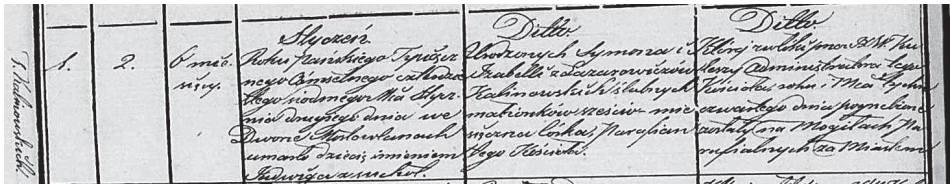 J. Kalinowska
1.
2.
6 mie-
sięcy.
Styczeń
Roku Pańskiego Tysiącz-
nego Ośmsetnego czterdzie-
stego siódmego Mca Stycz-
nia drugiego dnia we
Dworze umarło dziecię imieniem
Jadwiga z suchot.
Ditto
Urodzonych Symona i
Izabelli z Łazarowiczów
Kalinowskich ślubnych
małżonków sześcio mie-
sięczna córka, Parafian
tego Kościoła.
Ditto
Której zwłoki przez X. W. Ku-
leszę Administratora tego
Kościoła roku i Mca tychże
czwartego dnia pogrzebione
zostały na Mogiłach Pa-
rafialnych za Miastem